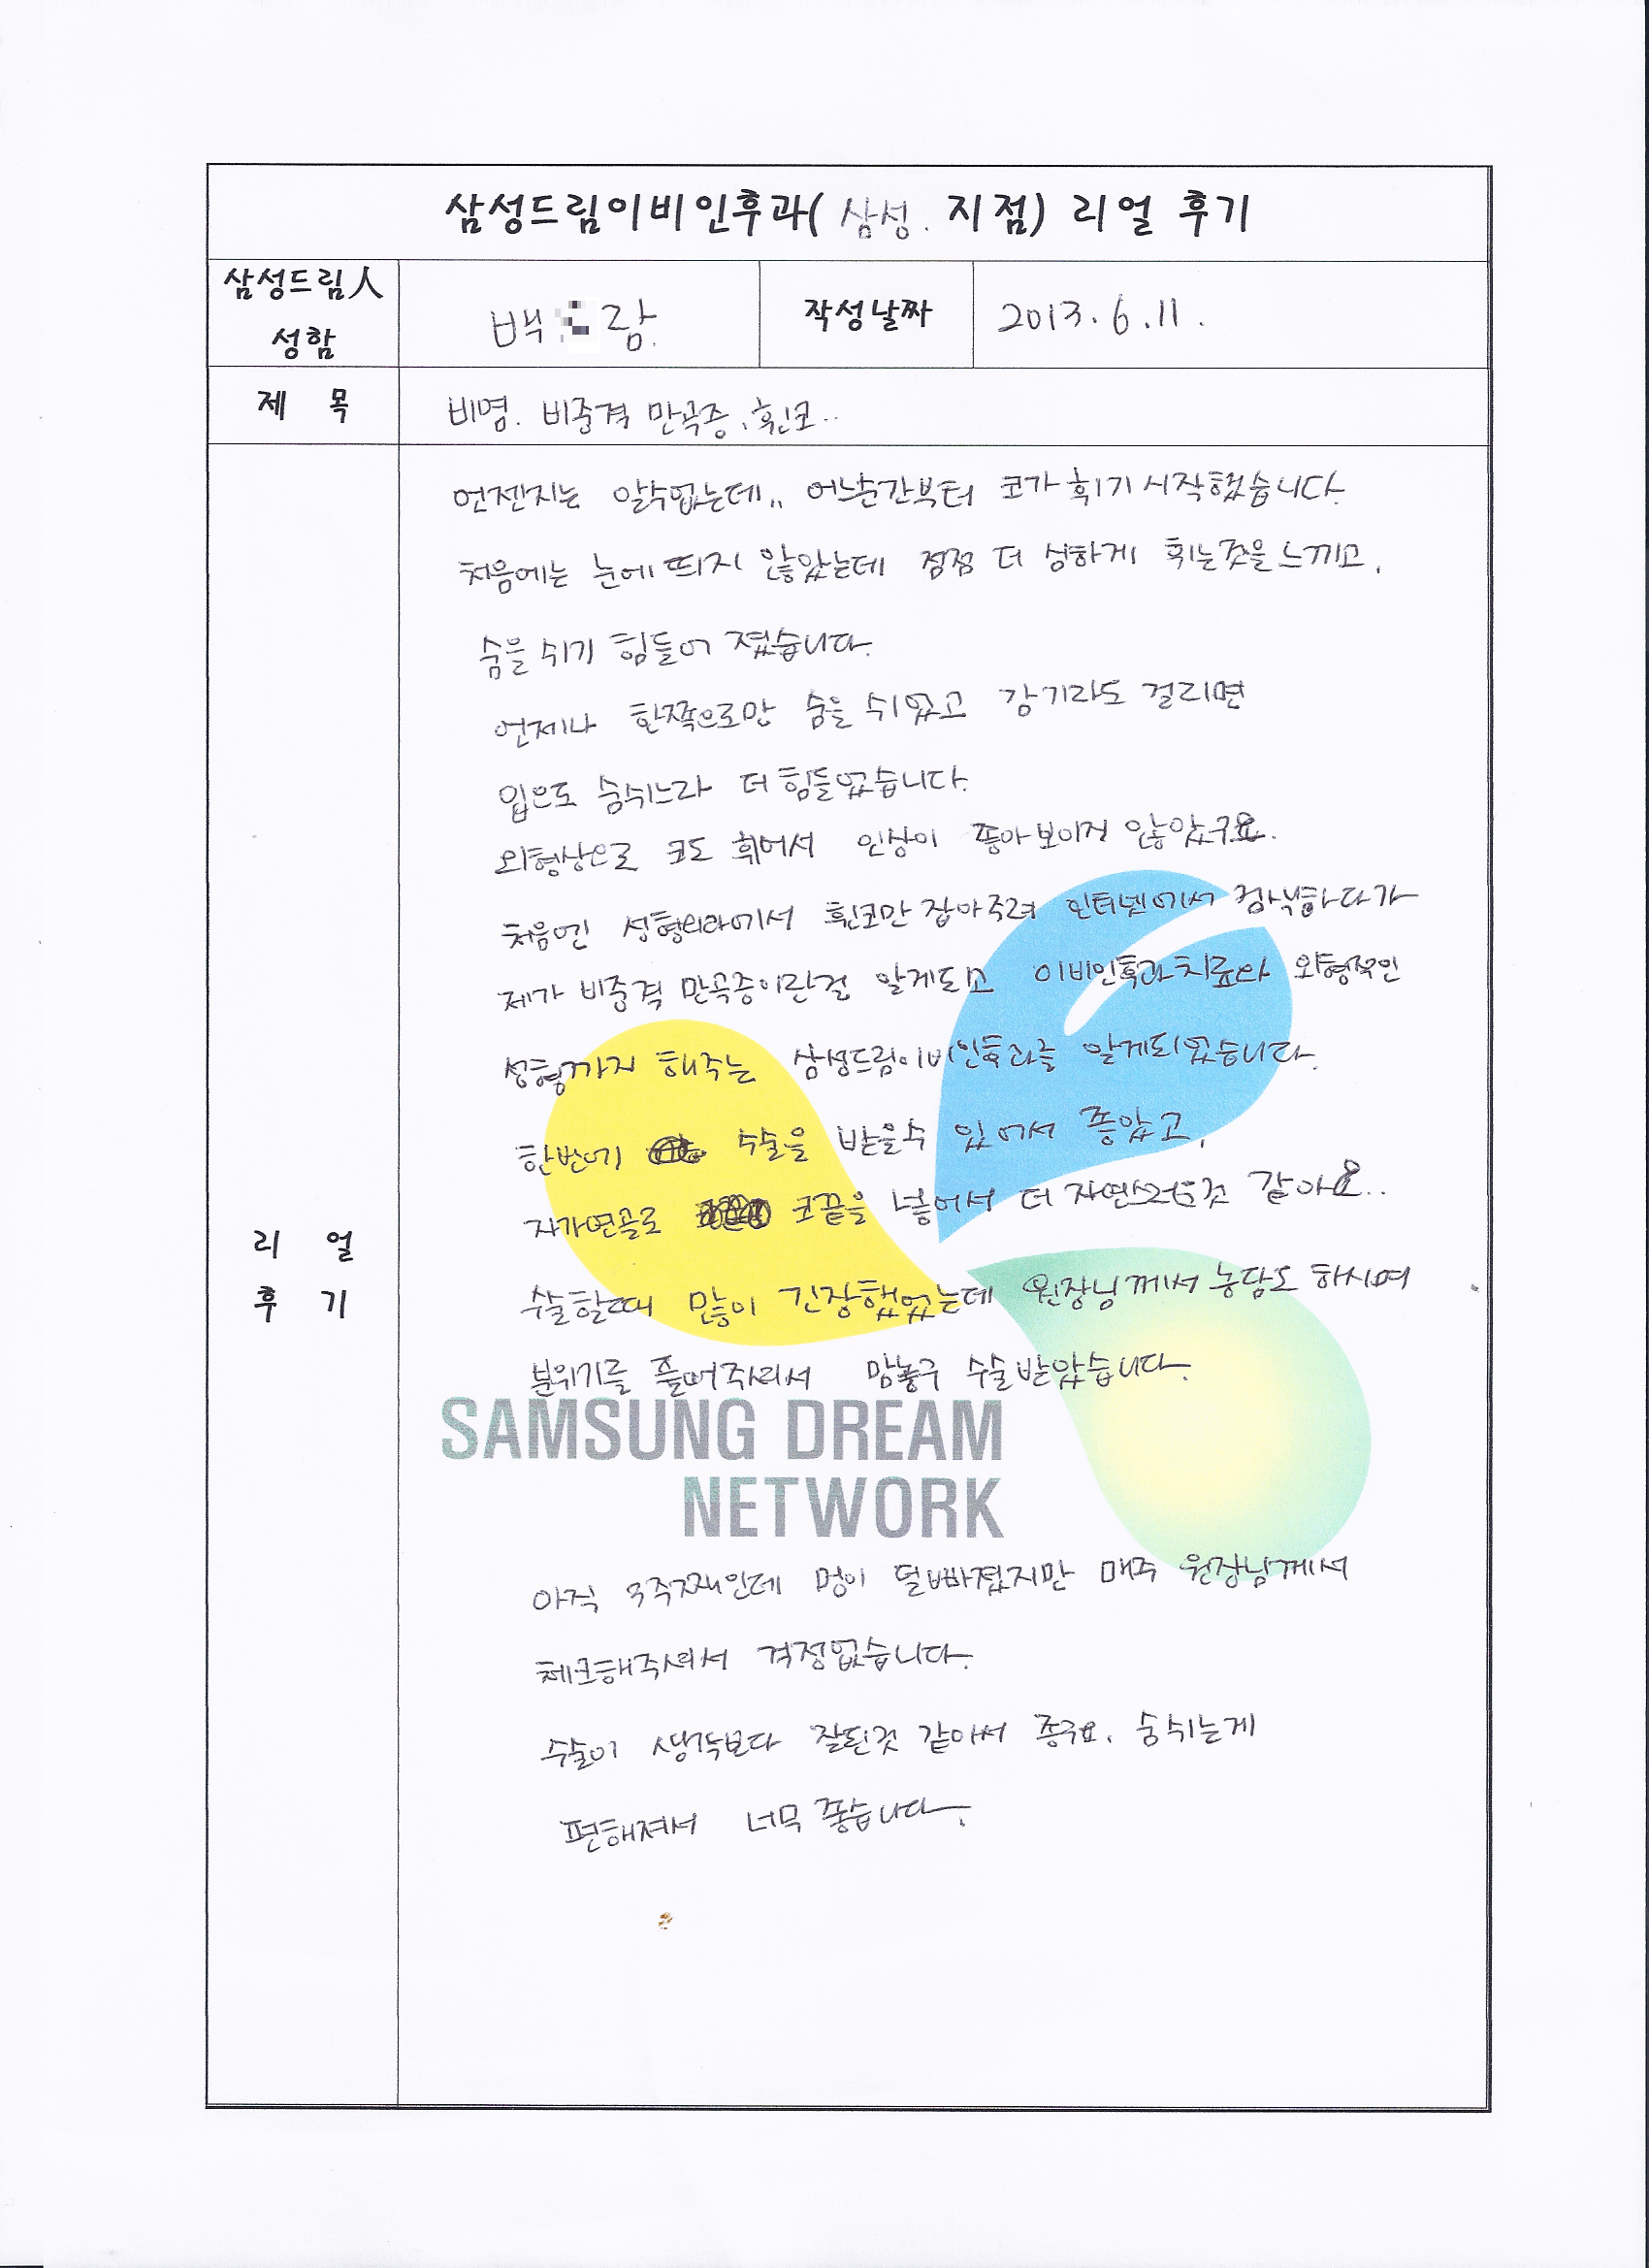 삼성드림이비인후과( 삼성. 지점) 리얼 후기
삼성드림人
성함
백 람.
작성날짜
2013. 6. 11.
제 목
비염. 비중격 만곡증, 휜코..
언젠지는 알수없는데.. 어느순간부터 코가 휘기 시작했습니다.
처음에는 눈에 띄지 않았는데 점점 더 심하게 휘는것을 느끼고,
숨을 쉬기 힘들어 졌습니다.
언제나 한쪽으로만 숨을 쉬었고 감기라도 걸리면
입으로 숨쉬느라 더 힘들었습니다.
외형상으로 코도 휘어서 인상이 좋아보이지 않았구요.
처음엔 성형외과에서 휜코만 잡아주려 인터넷에서 검색하다가
제가 비중격 만곡증이란걸 알게되고 이비인후과치료와 외형적인
성형까지 해주는 삼성드림이비인후과를 알게되었습니다.
한번에 수술을 받을수 있어서 좋았고,
자가연골로 코끝을 넣어서 더 자연스러운것 같아요..
수술할때 많이 긴장했었는데 원장님께서 농담도 하시며
분위기를 풀어주셔서 맘놓구 수술받았습니다.
SAMSUNG DREAM
NETWORK
아직 3주째인데 멍이 덜빠졌지만 매주 원장님께서
체크해주셔서 걱정없습니다.
수술이 생각보다 잘된것 같아서 좋구요. 숨쉬는게
편해져서 너무 좋습니다.
리 얼
후 기